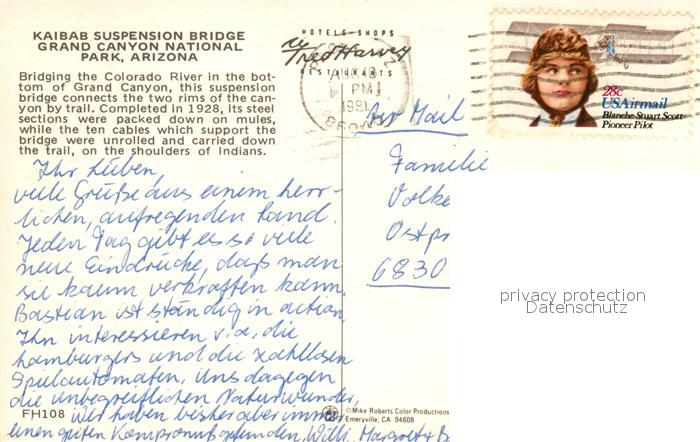 KAIBAB SUSPENSION BRIDGE
GRAND CANYON NATIONAL
PARK, ARIZONA
Bridging the Colorado River in the bot-
tom of Grand Canyon, this suspension
bridge connects the two rims of the can-
yon by trail. Completed in 1928, its steel
sections were packed down on mules,
while the ten cables which support the
bridge were unrolled and carried down
the trail, on the shoulders of Indians.
Ihr Lieben,
viele Grüße aus einem herr-
lichen, aufregenden Land.
Jeden Tag gibt es so viele
neue Eindrücke, daß man
sie kaum verkraften kann.
Bastian ist ständig in action,
Ihn interessieren v.a. die
Hamburgers und die zahllosen
Spielautomaten, uns dagegen
die unbegreiflichen Naturwunder,
Wir haben bisher aber immer
einen guten Kompromiß gefunden, Willi, Margret + B
FH108
HOTELS·SHOPS
Fred Harvey
RESTAURANTS
PM
Air Mail
Familie
Volke
Ostpr
6830
28c
USAirmail
Blanche Stuart Scott
Pioneer Pilot
privacy protection
Datenschutz
©Mike Roberts Color Productions
Emeryville, CA 94608